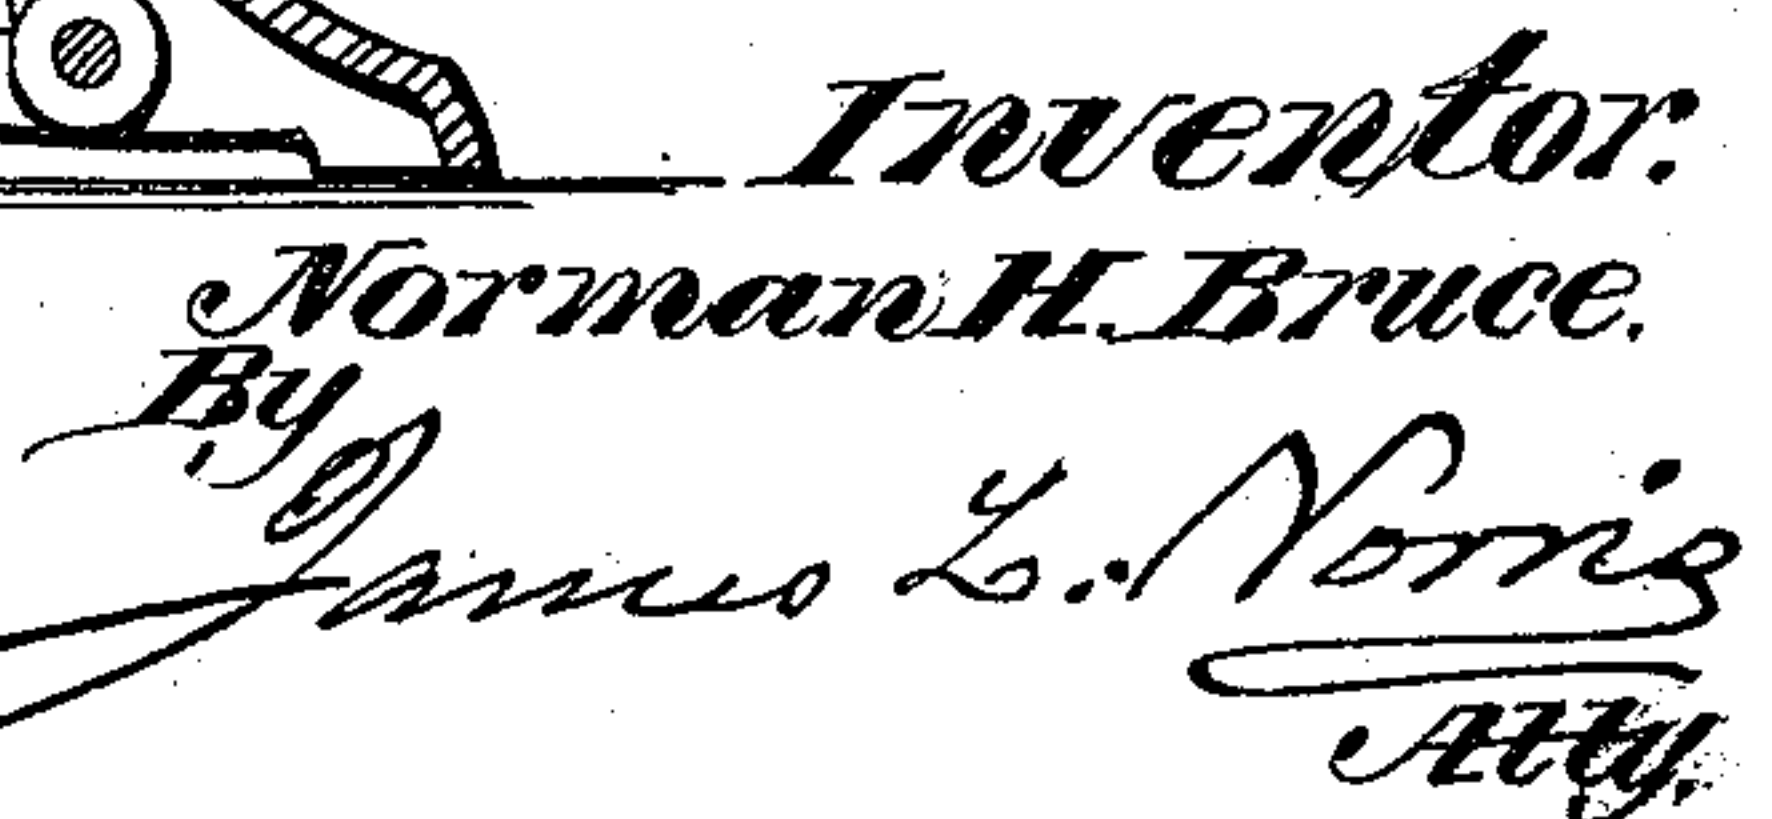 Inventor.
Norman H. Bruce.
By
James L. Norris
Atty.